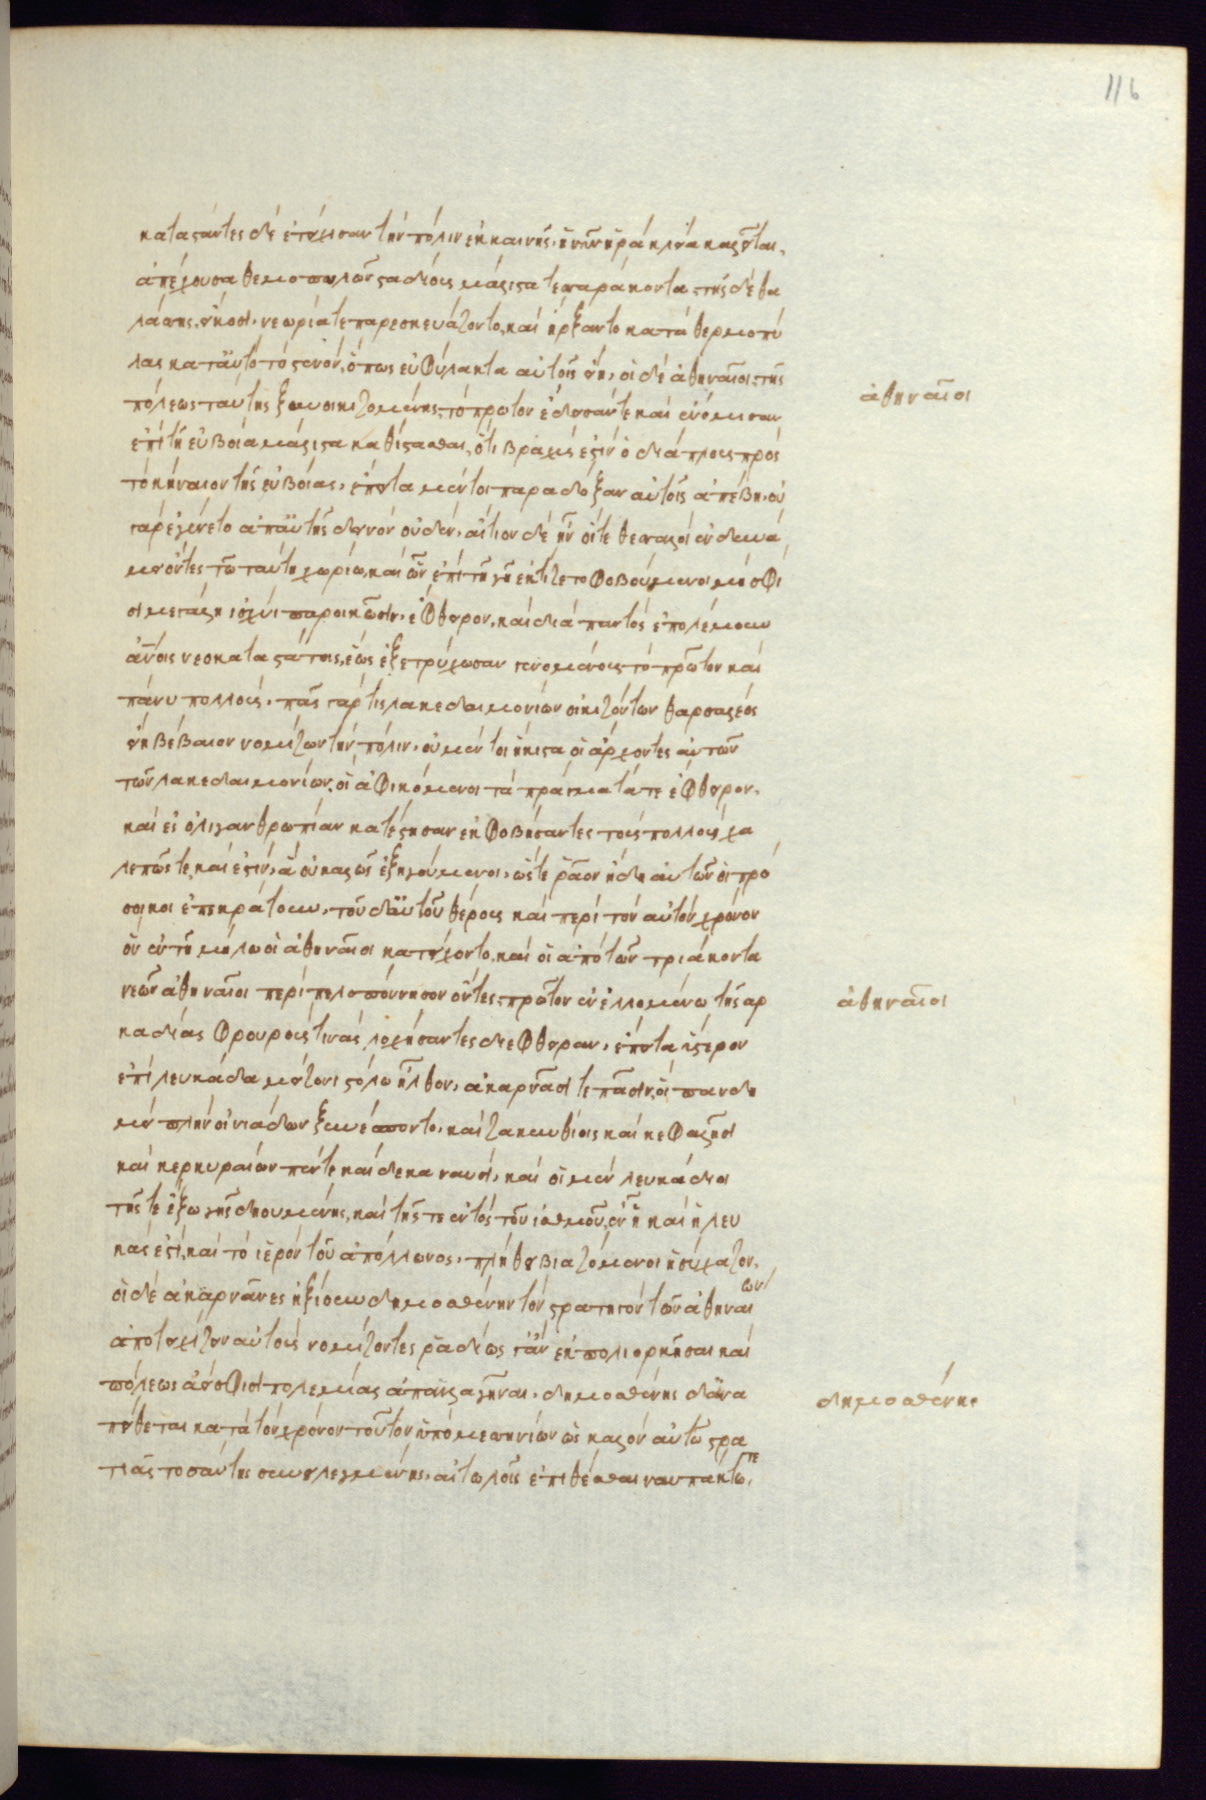 116
καταστάντες δὲ ἐτείχισαν τὴν πόλιν ἐκ καινῆς, ἣ νῦν ἡράκλεια καλεῖται,
ἀπέχουσα θερμοπυλῶν σταδίους μάλιστα τεσσαράκοντα, τῆς δὲ θα
λάσσης, εἴκοσι. νεώριά τε παρεσκευάζοντο, καὶ ἤρξαντο κατὰ θερμοπύ
λας κατ' αὐτὸ τὸ στενόν, ὅπως εὐφύλακτα αὐτοῖς εἴη. οἱ δὲ ἀθηναῖοι, τῆς
ἀθηναῖοι
πόλεως ταύτης ξυνοικιζομένης, τὸ πρῶτον ἔδεισάν τε καὶ ἐνόμισαν
ἐπὶ τῇ εὐβοίᾳ μάλιστα καθίστασθαι, ὅτι βραχύς ἐστιν ὁ διάπλους πρὸς
τὸ κήναιον τῆς εὐβοίας. ἔπειτα μέντοι παρὰ δόξαν αὐτοῖς ἀπέβη. οὐ
γὰρ ἐγένετο ἀπ' αὐτῆς δεινὸν οὐδέν. αἴτιον δὲ ἦν, οἵ τε θεσσαλοὶ ἐν δυνά
μει ὄντες τῶν ταύτῃ χωρίων, καὶ ὧν ἐπὶ τῇ γῇ ἐκτίζετο φοβούμενοι μὴ σφί
σι μεγάλῃ ἰσχύι παροικῶσιν, ἔφθειρον, καὶ διὰ παντὸς ἐπολέμουν
ἀνθρώποις νεοκαταστάτοις, ἕως ἐξετρύχωσαν γενομένους τὸ πρῶτον καὶ
πάνυ πολλούς. πᾶς γάρ τις λακεδαιμονίων οἰκιζόντων θαρσαλέως
ᾔει βέβαιον νομίζων τὴν πόλιν. οὐ μέντοι ἥκιστα οἱ ἄρχοντες αὐτῶν
τῶν λακεδαιμονίων, οἱ ἀφικόμενοι τὰ πράγματά τε ἔφθειρον,
καὶ ἐς ὀλιγανθρωπίαν κατέστησαν ἐκφοβήσαντες τοὺς πολλοὺς χα
λεπῶς τε, καὶ ἔστιν ἃ οὐ καλῶς ἐξηγούμενοι, ὥστε ῥᾶον ἤδη αὐτῶν οἱ πρό
σοικοι ἐπεκράτουν. τοῦ δ' αὐτοῦ θέρους καὶ περὶ τὸν αὐτὸν χρόνον
ὃν ἐν τῇ μήλῳ οἱ ἀθηναῖοι κατείχοντο, καὶ οἱ ἀπὸ τῶν τριάκοντα
νεῶν ἀθηναῖοι περὶ πελοπόννησον ὄντες, πρῶτον ἐν ἐλλομένῳ τῆς ἀρ
ἀθηναῖοι
καδίας φρουρούς τινας λοχήσαντες διέφθειραν. ἔπειτα ὕστερον
ἐπὶ λευκάδα μείζονι στόλῳ ἦλθον, ἀκαρνᾶσί τε πᾶσιν, οἳ πανδη
μεὶ πλὴν οἰνιαδῶν ξυνέσποντο, καὶ ζακυνθίοις καὶ κεφαλλῆσι
καὶ κερκυραίων πέντε καὶ δέκα ναυσί. καὶ οἱ μὲν λευκάδιοι
τῆς τε ἔξω γῆς δῃουμένης, καὶ τῆς τε ἐντὸς τοῦ ἰσθμοῦ, ἐν ᾗ καὶ ἡ λευ
κάς ἐστι, καὶ τὸ ἱερὸν τοῦ ἀπόλλωνος, πλήθει βιαζόμενοι ἡσύχαζον.
οἱ δὲ ἀκαρνᾶνες ἠξίουν δημοσθένην τὸν στρατηγὸν τῶν ἀθηναίων
ἀποτειχίζειν αὐτοὺς νομίζοντες ῥᾳδίως τ' ἂν ἐκπολιορκῆσαι καὶ
πόλεως ἀεὶ σφίσι πολεμίας ἀπαλλαγῆναι. δημοσθένης δ' ἀνα
δημοσθένης
πείθεται κατὰ τὸν χρόνον τοῦτον ὑπὸ μεσσηνίων ὡς καλὸν αὐτῷ στρα
τιᾶς τοσαύτης συνειλεγμένης, αἰτωλοῖς ἐπιθέσθαι ναυπάκτῳ τε